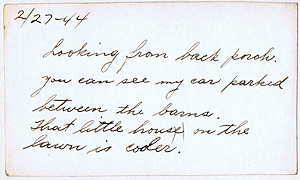 2/27-44
Looking from back porch.
you can see my car parked
between the barns.
That little house on the
lawn is